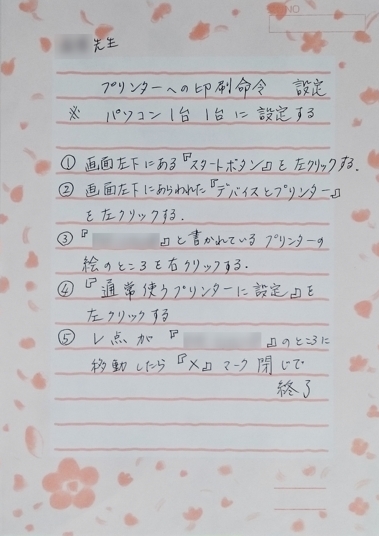 NO
先生
プリンターへの印刷命令 設定
※ パソコン1台1台に設定する
① 画面左下にある『スタートボタン』を左クリックする.
② 画面左下にあらわれた『デバイスとプリンター』
を左クリックする.
③『 』と書かれているプリンターの
絵のところを右クリックする.
④『通常使うプリンターに設定』を
左クリックする
⑤ レ点が『 』のところに
移動したら『×』マーク閉じで
終了